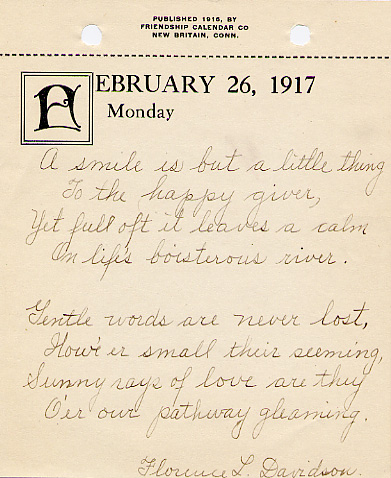 PUBLISHED 1916, BY
FRIENDSHIP CALENDAR CO
NEW BRITAIN, CONN.
FEBRUARY 26, 1917
Monday
A smile is but a little thing
To the happy giver,
Yet full oft it leaves a calm
On life's boisterous river.
Gentle words are never lost,
Howe'er small their seeming,
Sunny rays of love are they
O'er our pathway gleaming.
Florence L. Davidson.